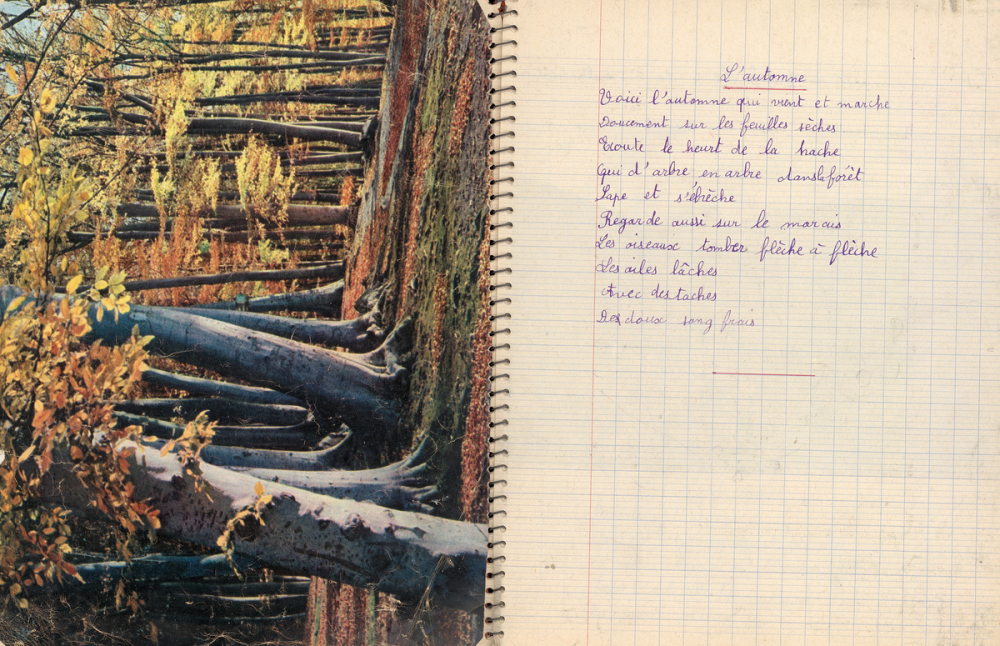 L'automne
Voici l'automne qui vient et marche
Doucement sur les feuilles sèches
Ecoute le heurt de la hache
Qui d'arbre en arbre dans la forêt
Sape et s'ébrèche
Regarde aussi sur le marais
Les oiseaux tomber flèche à flèche
Les ailes lâches
Avec des taches
De doux sang frais